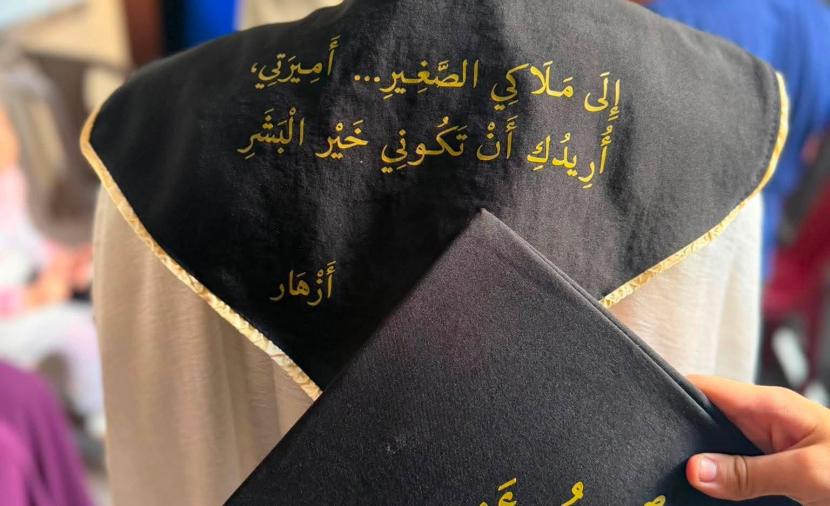 إِلَى مَلَاكِي الصَّغِيرِ... أَمِيرَتِي،
أُرِيدُكِ أَنْ تَكُونِي خَيْر الْبَشَرِ
أَزْهَار